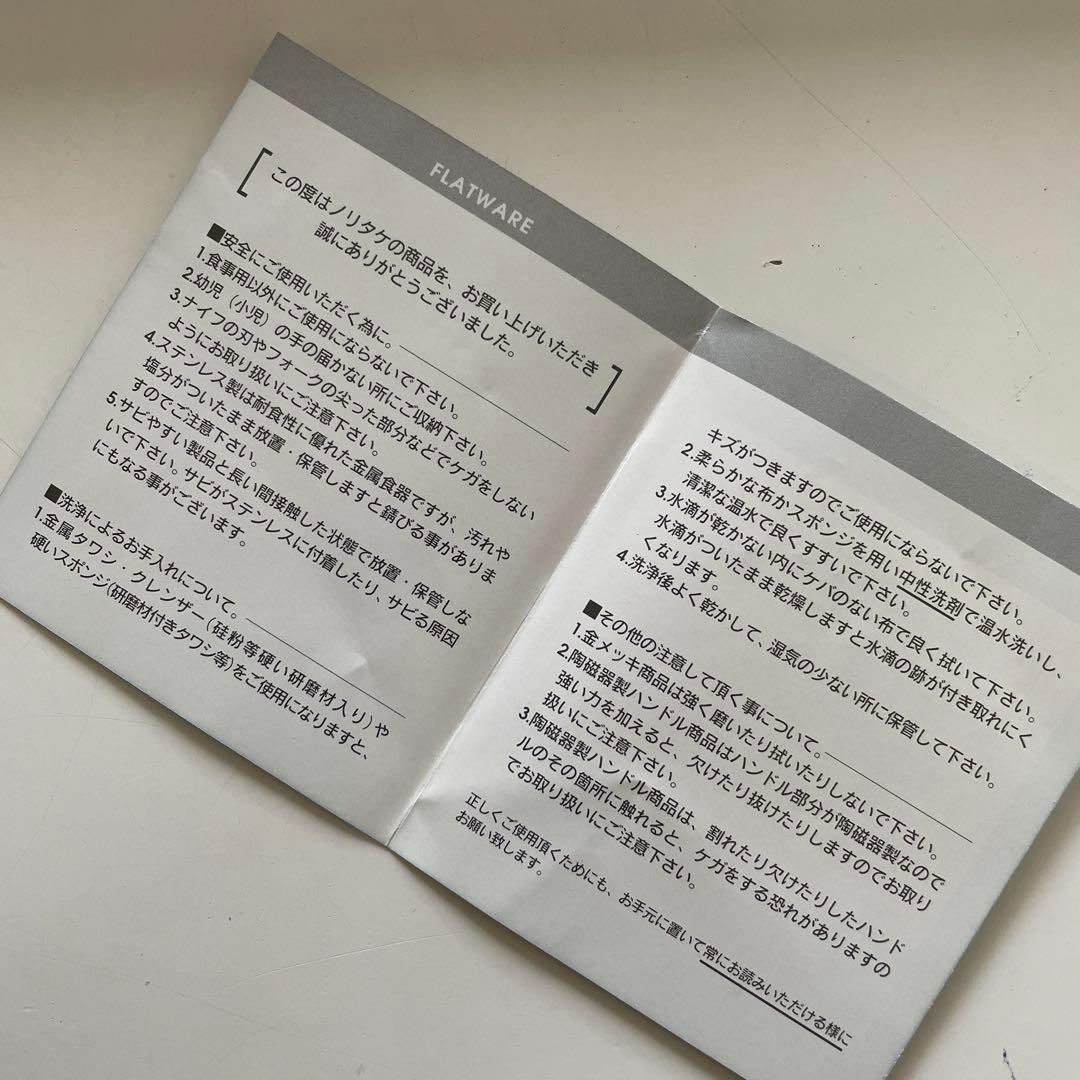 FLATWARE
この度はノリタケの商品を、お買い上げいただき
誠にありがとうございました。
■安全にご使用いただく為に。
1.食事用以外にご使用にならないで下さい。
2.幼児（小児）の手の届かない所にご収納下さい。
3.ナイフの刃やフォークの尖った部分などでケガをしない
ようにお取り扱いにご注意下さい。
4.ステンレス製は耐食性に優れた金属食器ですが、汚れや
塩分がついたまま放置・保管しますと錆びる事がありま
すのでご注意下さい。
5.サビやすい製品と長い間接触した状態で放置・保管しな
いで下さい。サビがステンレスに付着したり、サビる原因
にもなる事がございます。
■洗浄によるお手入れについて。
1.金属タワシ・クレンザー（硅粉等硬い研磨材入り）や
硬いスポンジ(研磨材付きタワシ等)をご使用になりますと、
キズがつきますのでご使用にならないで下さい。
2.柔らかな布かスポンジを用い中性洗剤で温水洗いし、
清潔な温水で良くすすいで下さい。
3.水滴が乾かない内にケバのない布で良く拭いて下さい。
水滴がついたまま乾燥しますと水滴の跡が付き取れにく
くなります。
4.洗浄後よく乾かして、湿気の少ない所に保管して下さい。
■その他の注意して頂く事について。
1.金メッキ商品は強く磨いたり拭いたりしないで下さい。
2.陶磁器製ハンドル商品はハンドル部分が陶磁器製なので
強い力を加えると、欠けたり抜けたりしますのでお取り
扱いにご注意下さい。
3.陶磁器製ハンドル商品は、割れたり欠けたりしたハンド
ルのその箇所に触れると、ケガをする恐れがありますの
でお取り扱いにご注意下さい。
正しくご使用頂くためにも、お手元に置いて常にお読みいただける様に
お願い致します。